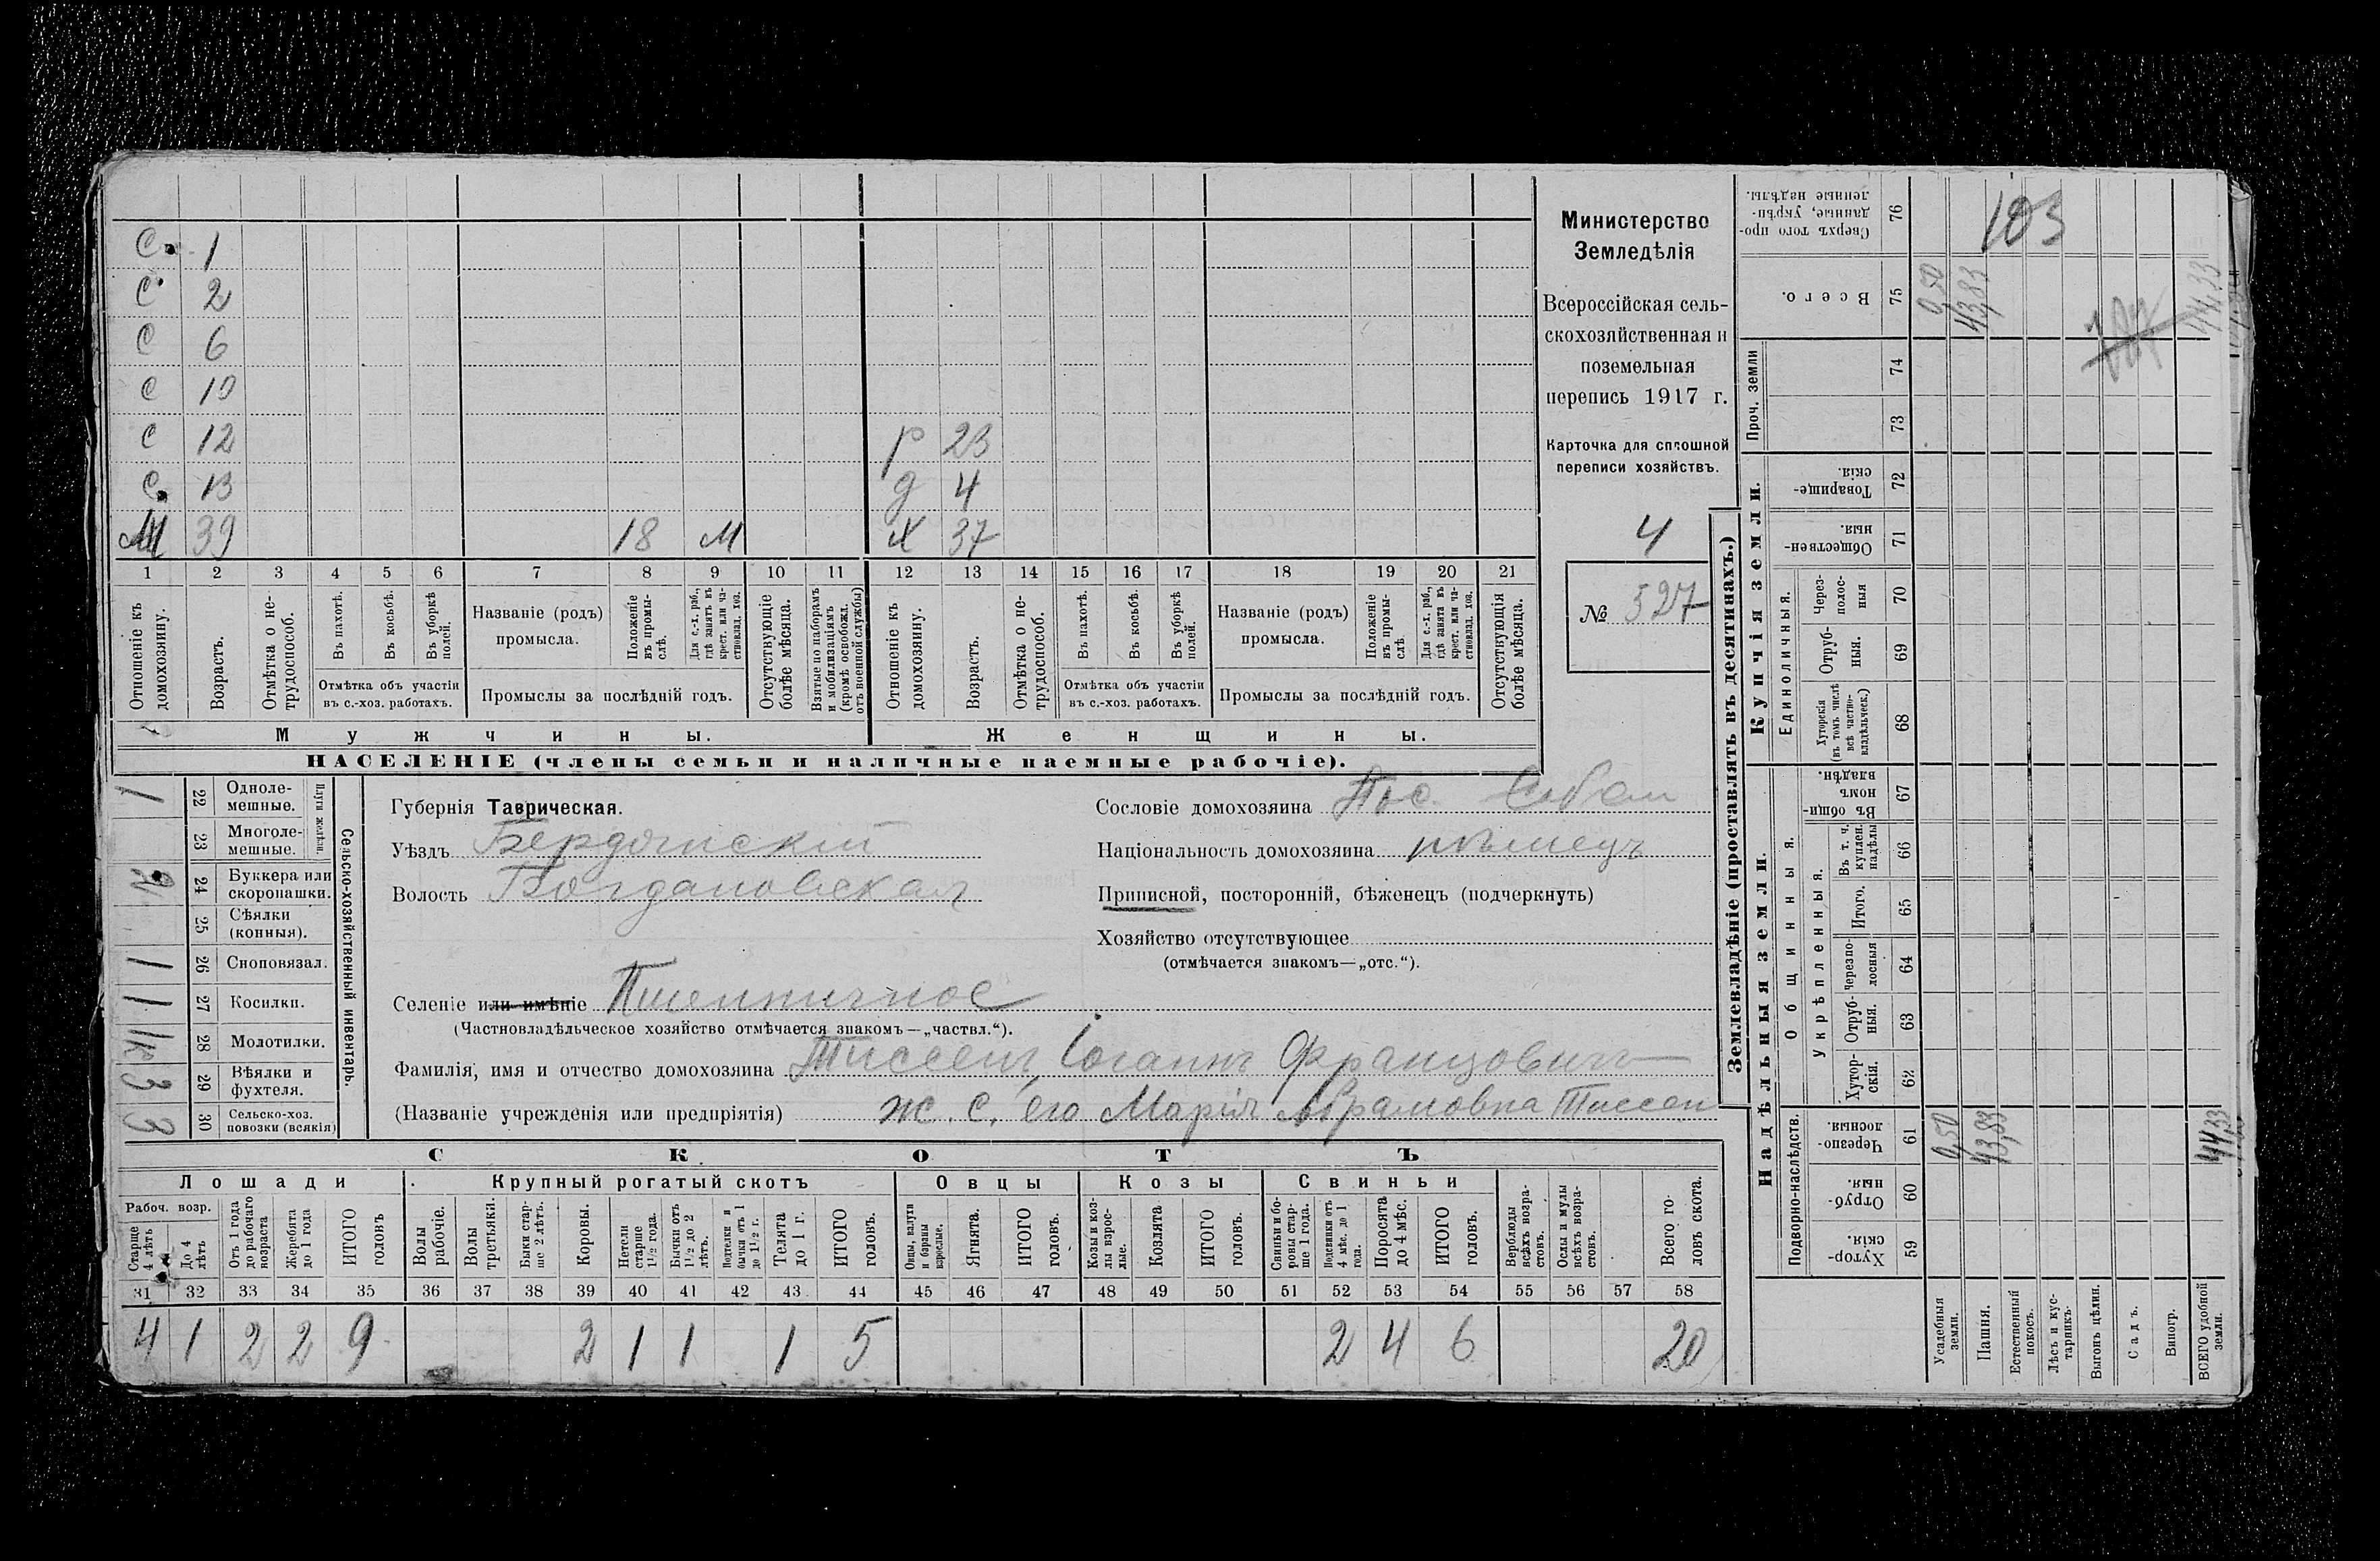 С. 1
С 2
С 6
С 10
С 12 р 23
С. 13 д 4
39 18 м х 37
1 2 3 4 5 6 7 8 9 10 11 12 13 14 15 16 17 18 19 20 21
Отношеніе къ домохозяину.
Возрастъ.
Отмѣтка о не-трудоспособ.
Въ пахотѣ.
Въ косьбѣ.
Въ уборкѣ полей.
Отмѣтка объ участіи
въ с.-хоз. работахъ.
Названіе (родъ)
промысла.
Положеніе въ промы-слѣ.
Для с.-х. раб., гдѣ занятъ въ крест. или ча-стновлад. хоз.
Промыслы за послѣдній годъ.
Отсутствующіе болѣе мѣсяца.
Взятые по наборамъ и мобилизаціямъ (кромѣ освобожл. отъ военной службы)
Отношеніе къ домохозяину.
Возрастъ.
Отмѣтка о не-трудоспособ.
Въ пахотѣ.
Въ косьбѣ.
Въ уборкѣ полей.
Отмѣтка объ участіи
въ с.-хоз. работахъ.
Названіе (родъ)
промысла.
Положеніе въ промы-слѣ
Для с.-х. раб., гдѣ занята въ крест. или ча-стновлад. хоз.
Промыслы за послѣдній годъ.
Отсутствующія болѣе мѣсяца.
Мужчины.
Женщины.
НАСЕЛЕНІЕ (члены семьи и наличные наемные рабочіе).
Министерство
Земледѣлія
Всероссійская сель-
скохозяйственная и
поземельная
перепись 1917 г.
Карточка для сплошной
переписи хозяйствъ.
4
№ 527
Сельско-хозяйственный инвентарь.
Плуги желѣзн.
1 22 Одноле-мешные.
23 Многоле-мешные.
2 24 Буккера или скоропашки.
25 Сѣялки (конныя).
1 26 Сноповязал.
1 27 Косилки.
28 Молотилки.
3 29 Вѣялки и фухтеля.
3 30 Сельско-хоз. повозки (всякія)
Губернія Таврическая.
Уѣздъ Бердянскій
Волость Богдановская
Селеніе или имѣніе Пшеничное
(Частновладѣльческое хозяйство отмѣчается знакомъ—„частвл.“).
Фамилія, имя и отчество домохозяина Тиссенъ Іоганнъ Францовичъ
(Названіе учрежденія или предпріятія) ж. с. его Марія Абрамовна Тиссен
Сословіе домохозяина Пос. Собст
Національность домохозяина нѣмецъ
Приписной, посторонній, бѣженецъ (подчеркнуть)
Хозяйство отсутствующее
(отмѣчается знакомъ—„отс.“).
СКОТЪ
Лошади
Крупный рогатый скотъ
Овцы
Козы
Свиньи
Рабоч. возр.
Старше 4 лѣтъ
До 4 лѣтъ
Отъ 1 года до рабочаго возраста
Жеребята до 1 года
ИТОГО головъ
Волы рабочіе.
Волы третьяки.
Быки стар-ше 2 лѣтъ.
Коровы.
Нетели старше 1½ года.
Бычки отъ 1½ до 2 лѣтъ.
Подтелки и бычки отъ 1 до 1½ г.
Телята до 1 г.
ИТОГО головъ.
Овцы, валухи и бараны взрослые.
Ягнята.
ИТОГО головъ.
Козы и коз-лы взрос-лые.
Козлята
ИТОГО головъ.
Свиньи и бо-ровы стар-ше 1 года.
Подсвинки отъ 4 мѣс. до 1 года.
Поросята до 4 мѣс.
ИТОГО головъ.
Верблюды всѣхъ возра-стовъ.
Ослы и мулы всѣхъ возра-стовъ.
Всего го-ловъ скота.
31 32 33 34 35 36 37 38 39 40 41 42 43 44 45 46 47 48 49 50 51 52 53 54 55 56 57 58
4 1 2 2 9 2 1 1 1 5 2 4 6 20
Землевладѣніе (проставлять въ десятинахъ.)
Надѣльныя земли.
Купчія земли.
Проч. земли
Подворно-наслѣдств.
Общинныя.
Укрѣпленныя.
Единоличныя.
Сверхъ того про-данные, укрѣп-ленные надѣлы. 76 103
Всего. 75 0,50 43,83 44,33
74
73
Товарище-скія. 72
Обществен-ныя. 71
Через-полос-ныя 70
Отруб-ныя. 69
Хуторскія (въ томъ числѣ всѣ частно-владѣльческ.) 68
Въ общин-номъ владѣн. 67
Въ т. ч. куплен. надѣлы 66
Итого. 65
Черезпо-лосныя 64
Отруб-ныя. 63
Хутор-скія. 62
Черезпо-лосныя. 61 0,50 43,83 44,33
Отруб-ныя. 60
Хутор-скія. 59
Усадебныя земли.
Пашня.
Естественный покосъ.
Лѣсъ и кус-тарникъ.
Выгонъ цѣлин.
Садъ.
Виногр.
ВСЕГО удобной земли.